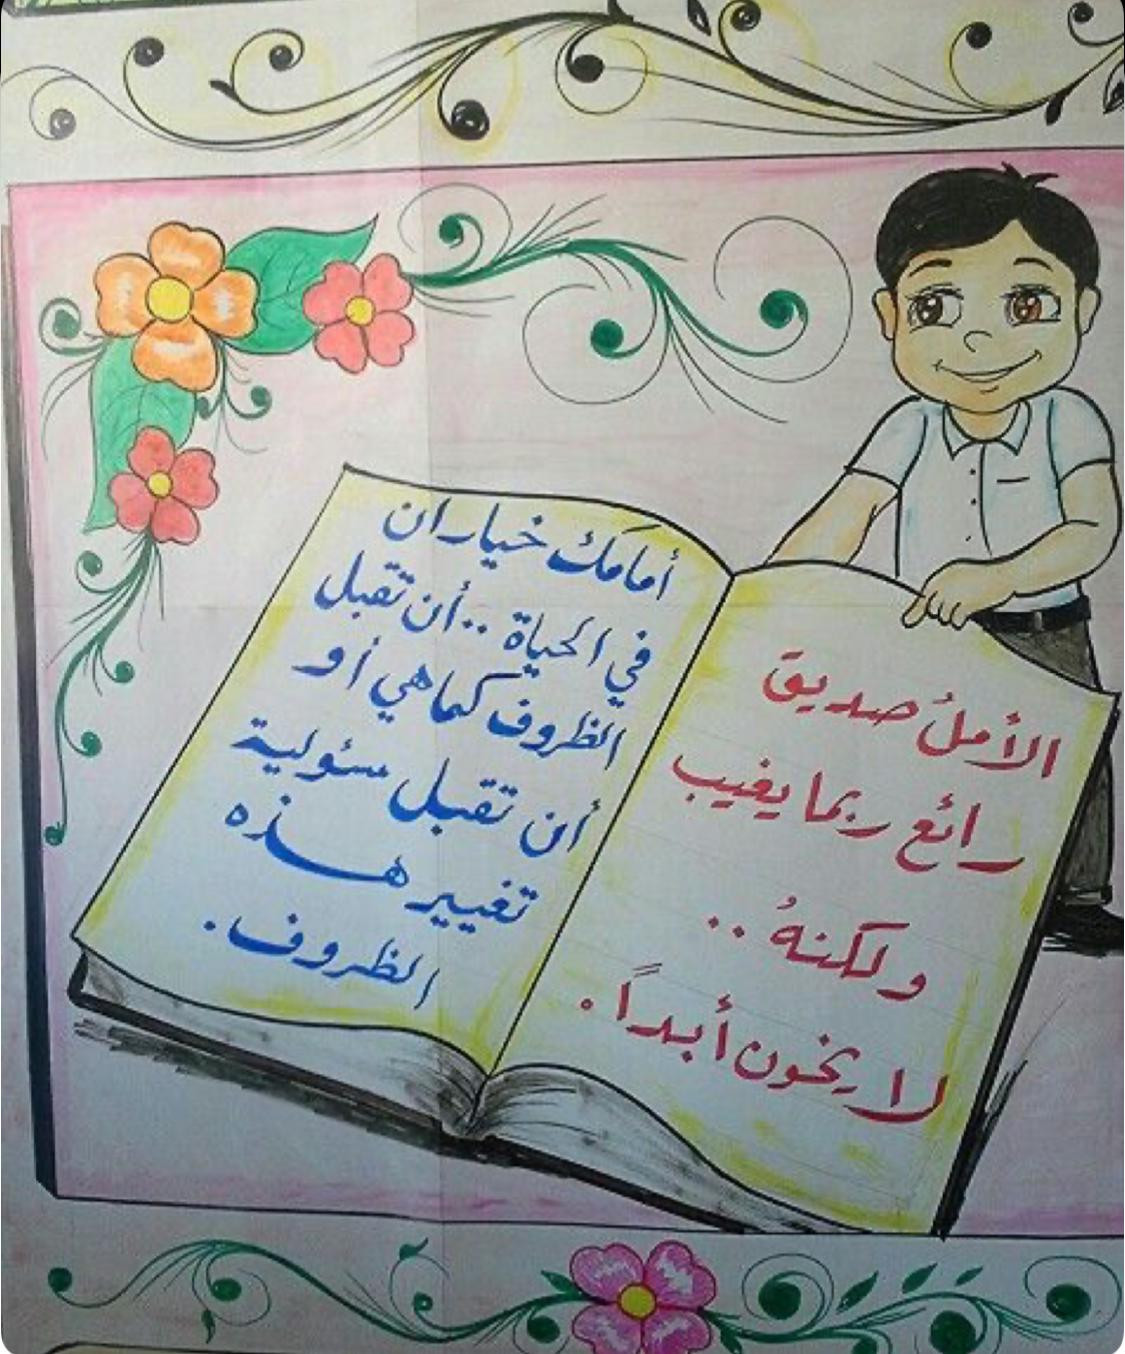 الأملُ صديق
رائع ربما يغيب
ولكنهُ ..
لا يخون أبداً .
أمامك خياران
في الحياة .. أن تقبل
الظروف كما هي أو
أن تقبل مسئولية
تغيير هذه
الظروف .